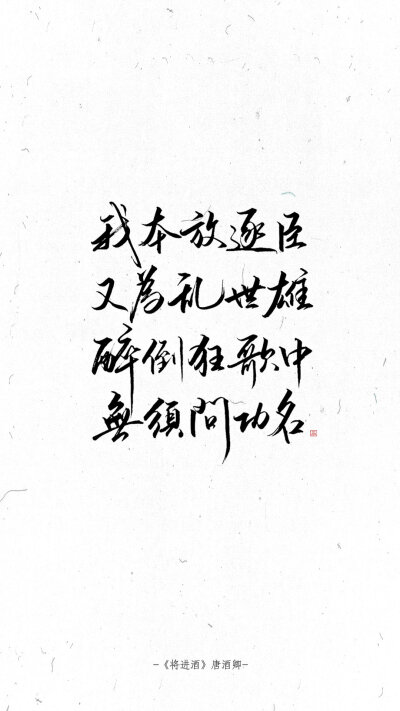 我本放逐臣
又為乱世雄
醉倒狂歌中
無須問功名
-《将进酒》唐酒卿-